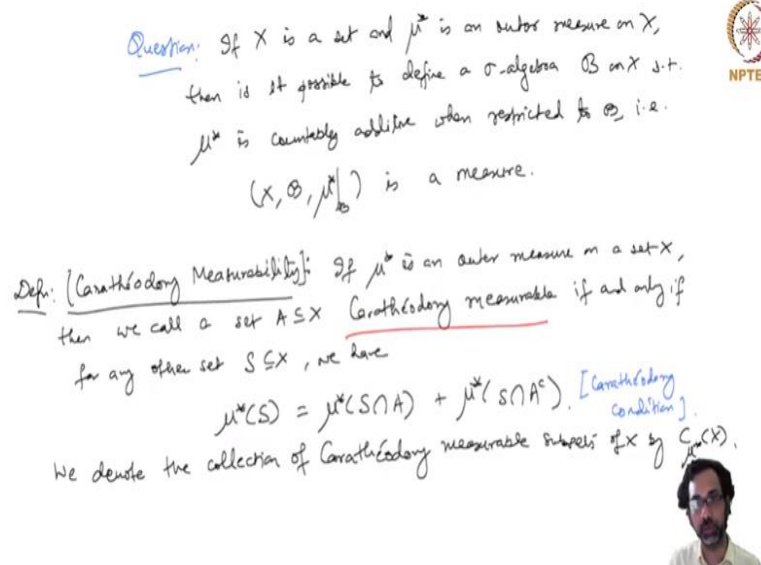 Question: If X is a set and μ* is an outer measure on X,
NPTE
then is it possible to define a σ-algebra ℬ on X s.t.
μ* is countably additive when restricted to ℬ, i.e.
(X, ℬ, μ*|ℬ) is a measure.
Defn: [Carathéodory Measurability]: If μ* is an outer measure on a set X,
then we call a set A ⊆ X Carathéodory measurable if and only if
for any other set S ⊆ X, we have
μ*(S) = μ*(S∩A) + μ*(S∩Aᶜ). [Carathéodory
condition].
We denote the collection of Carathéodory measurable subsets of X by C_μ*(X).